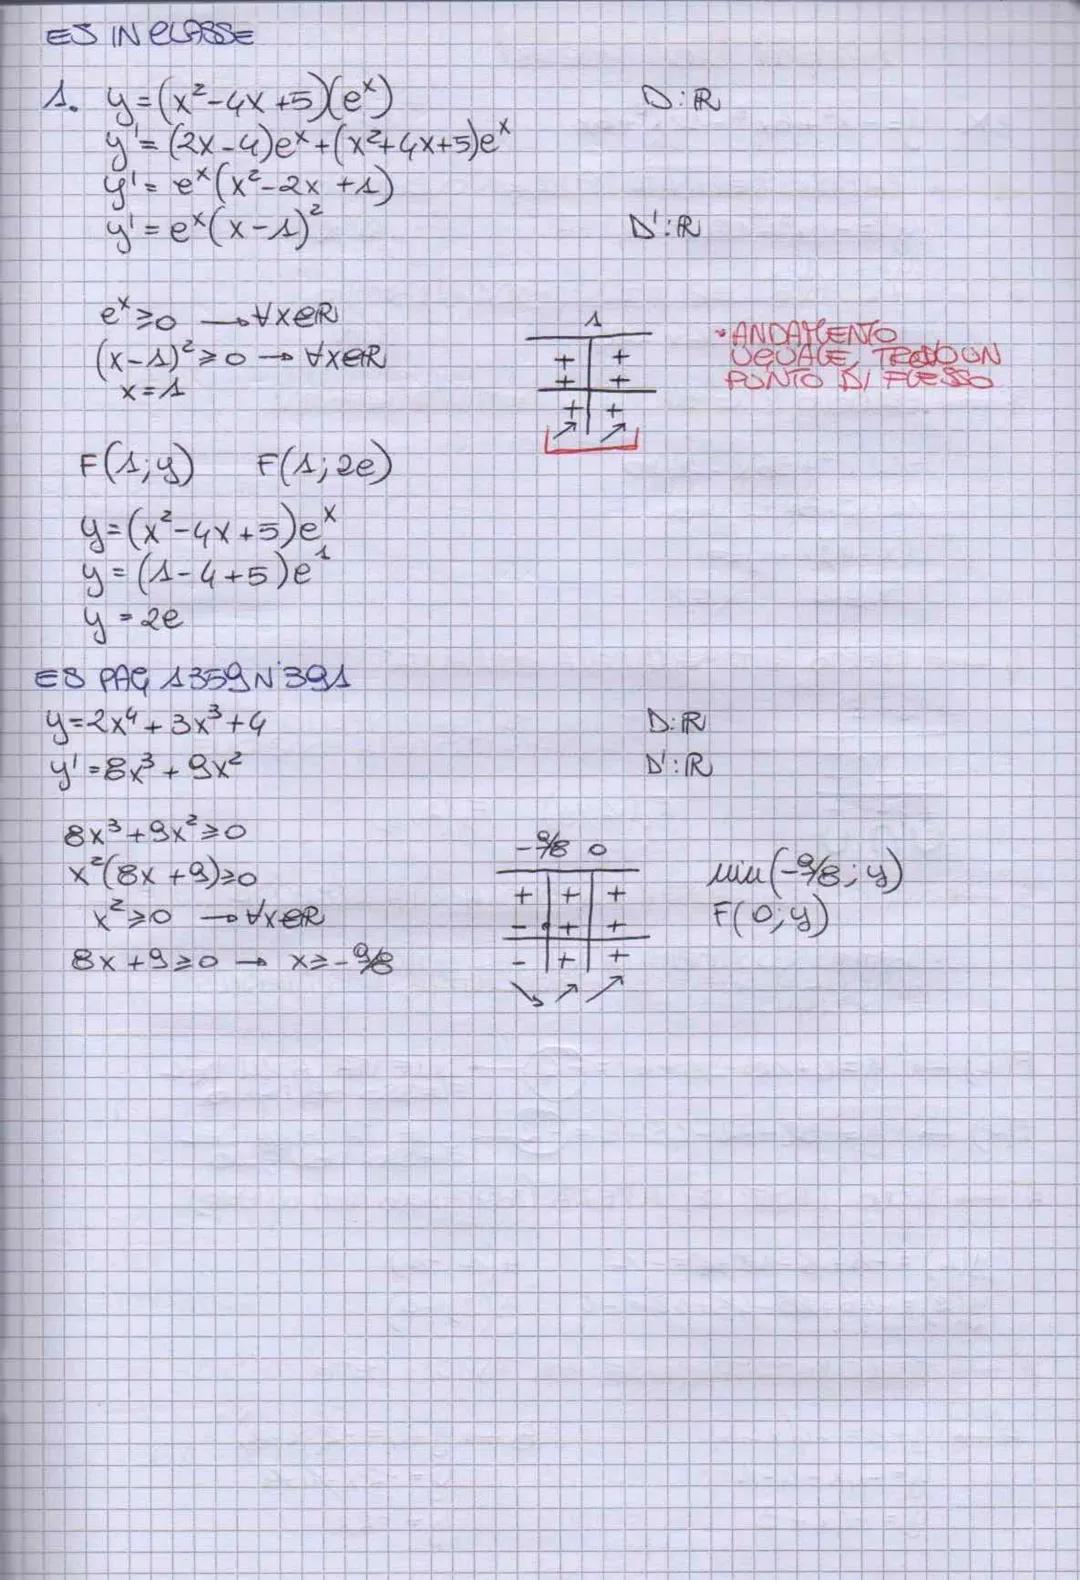 ES IN CLASSE
1. y=(x²-4x+5)(eˣ) D:ℝ
y'=(2x-4)eˣ+(x²+4x+5)eˣ
y'=eˣ(x²-2x+1)
y'=eˣ(x-1)² D':ℝ
eˣ≥0 → ∀x∈ℝ
(x-1)²≥0 → ∀x∈ℝ
x=1
1
+ +
+ +
+ +
↗ ↗
• ANDAMENTO
UGUALE, TROVO UN
PUNTO DI FLESSO
F(1;y) F(1;2e)
y=(x²-4x+5)eˣ
y=(1-4+5)e¹
y=2e
ES PAG 1359 N°391
y=2x⁴+3x³+4 D:ℝ
y'=8x³+9x² D':ℝ
8x³+9x²≥0
x²(8x+9)≥0
x²≥0 → ∀x∈ℝ
8x+9≥0 → x≥-9/8
-9/8 0
+ + +
- + +
- + +
↘ ↗ ↗
min(-9/8;y)
F(0;y)